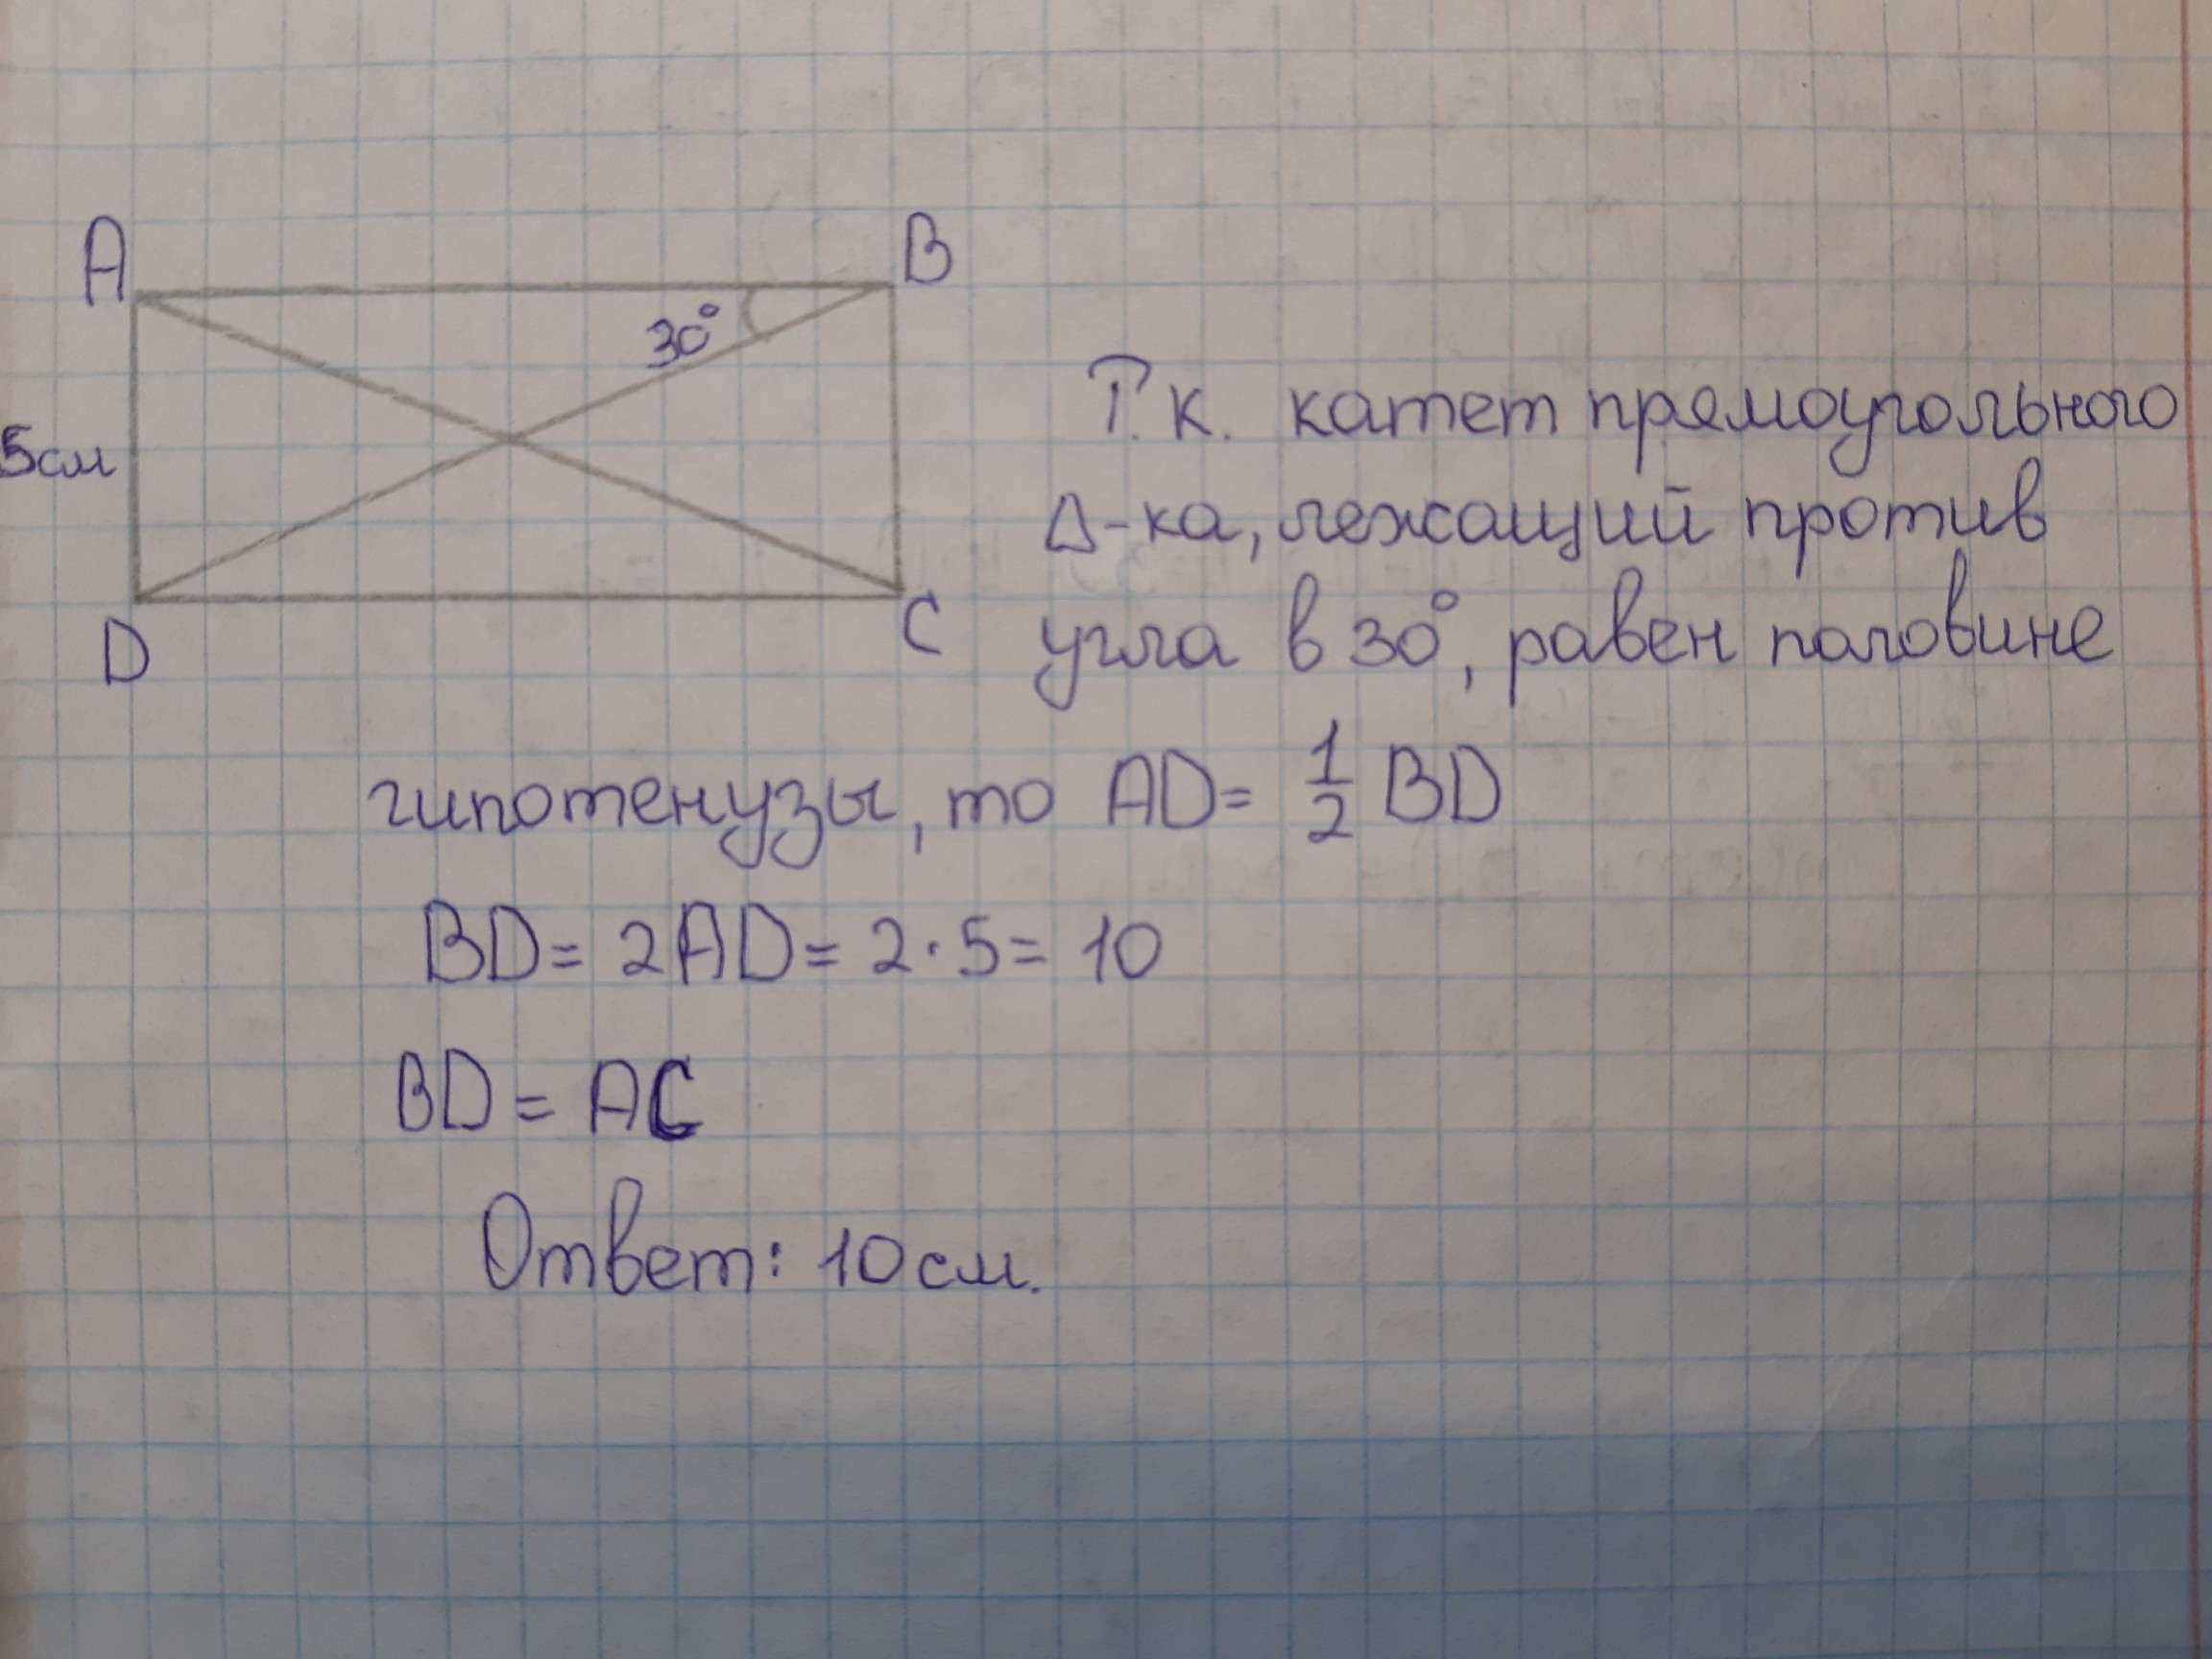 A
B
30°
5см
D
C
Т.к. катет прямоугольного
Δ-ка, лежащий против
угла в 30°, равен половине
гипотенузы, то AD = 1/2 BD
BD = 2AD = 2·5 = 10
BD = AC
Ответ: 10 см.